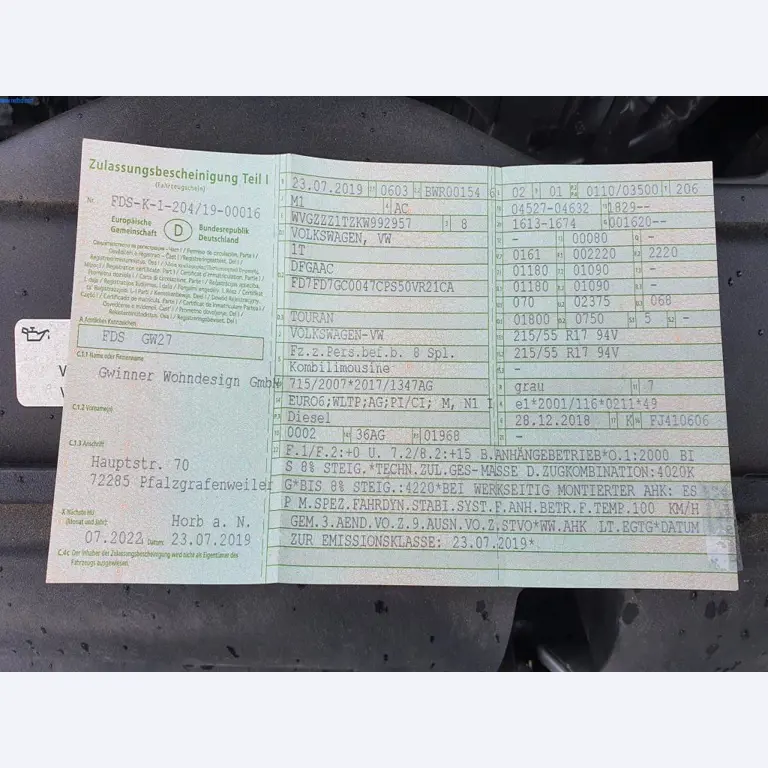 Zulassungsbescheinigung Teil I
(Fahrzeugschein)
Nr. FDS-K-1-204/19-00016
Europäische Gemeinschaft D Bundesrepublik Deutschland
A Amtliches Kennzeichen
FDS GW27
C.1.1 Name oder Firmenname
Gwinner Wohndesign GmbH
C.1.2 Vorname(n)
C.1.3 Anschrift
Hauptstr. 70
72285 Pfalzgrafenweiler
X Nächste HU
(Monat und Jahr)
Horb a. N.
07.2022 Datum 23.07.2019
C.4c Der Inhaber der Zulassungsbescheinigung wird nicht als Eigentümer des
Fahrzeugs ausgewiesen.
23.07.2019 0603 BWR00154 6
M1 AC
WVGZZZ1TZKW992957 8
VOLKSWAGEN, VW
1T
DFGAAC
FD7FD7GC0047CPS50VR21CA
TOURAN
VOLKSWAGEN-VW
Fz.z.Pers.bef.b. 8 Spl.
Kombilimousine
715/2007*2017/1347AG
EURO6;WLTP;AG;PI/CI; M, N1 I
Diesel
0002 36AG 01968
02 01 0110/03500 206
04527-04632 1829--
1613-1674 001620--
- 00080 -
0161 002220 2220
01180 01090 -
01180 01090 -
070 02375 068
01800 0750 5 -
215/55 R17 94V
215/55 R17 94V
-
-
grau 7
e1*2001/116*0211*49
28.12.2018 K FJ410606
-
F.1/F.2:+0 U. 7.2/8.2:+15 B.ANHÄNGEBETRIEB*O.1:2000 BI
S 8% STEIG.*TECHN.ZUL.GES-MASSE D.ZUGKOMBINATION:4020K
G*BIS 8% STEIG.:4220*BEI WERKSEITIG MONTIERTER AHK: ES
P M.SPEZ.FAHRDYN.STABI.SYST.F.ANH.BETR.F.TEMP.100 KM/H
GEM.3.AEND.VO.Z.9.AUSN.VO.Z.STVO*WW.AHK LT.EGTG*DATUM
ZUR EMISSIONSKLASSE: 23.07.2019*